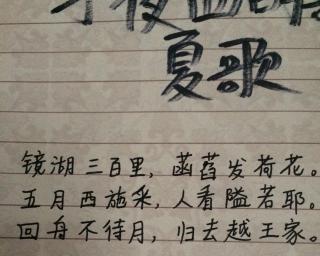 子夜四时
夏歌
镜湖三百里，菡萏发荷花。
五月西施采，人看隘若耶。
回舟不待月，归去越王家。